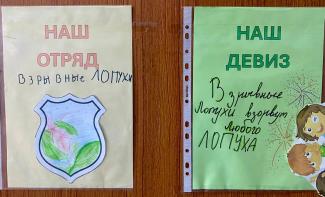 НАШ
ОТРЯД
Взрывные ЛОПУХИ
НАШ
ДЕВИЗ
Взрывные
Лопухи взорвут
Любого
ЛОПУХА